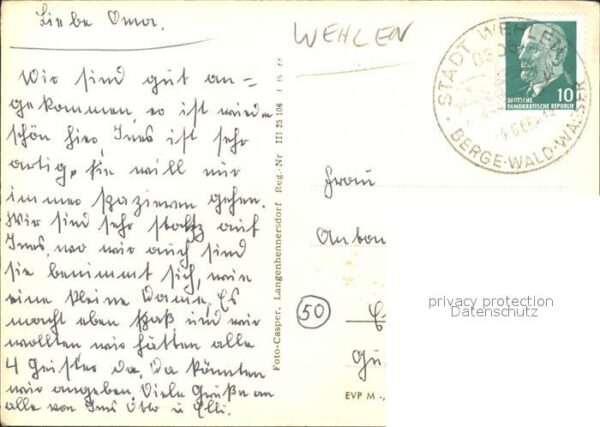 Liebe Oma.
Wir sind gut an=
gekommen, es ist wieder
schön hier, Ines ist sehr
artig, sie will nur
immer spazieren gehen.
Wir sind sehr stoltz auf
Ines, wo wir auch sind
sie benimmt sich, wie
eine kleine Dame. Es
macht eben Spaß und wir
wollten wir hätten alle
4 Geister da. Da könnten
wir angeben. Viele Grüße an
alle von Ines Otto u Elli.
WEHLEN
Foto-Casper, Langenhennersdorf Reg.-Nr III 25 106
STADT WEHLEN
BERGE·WALD·WASSER
10
DEUTSCHE
DEMOKRATISCHE REPUBLIK
Frau
50
EVP M -,
privacy protection
Datenschutz